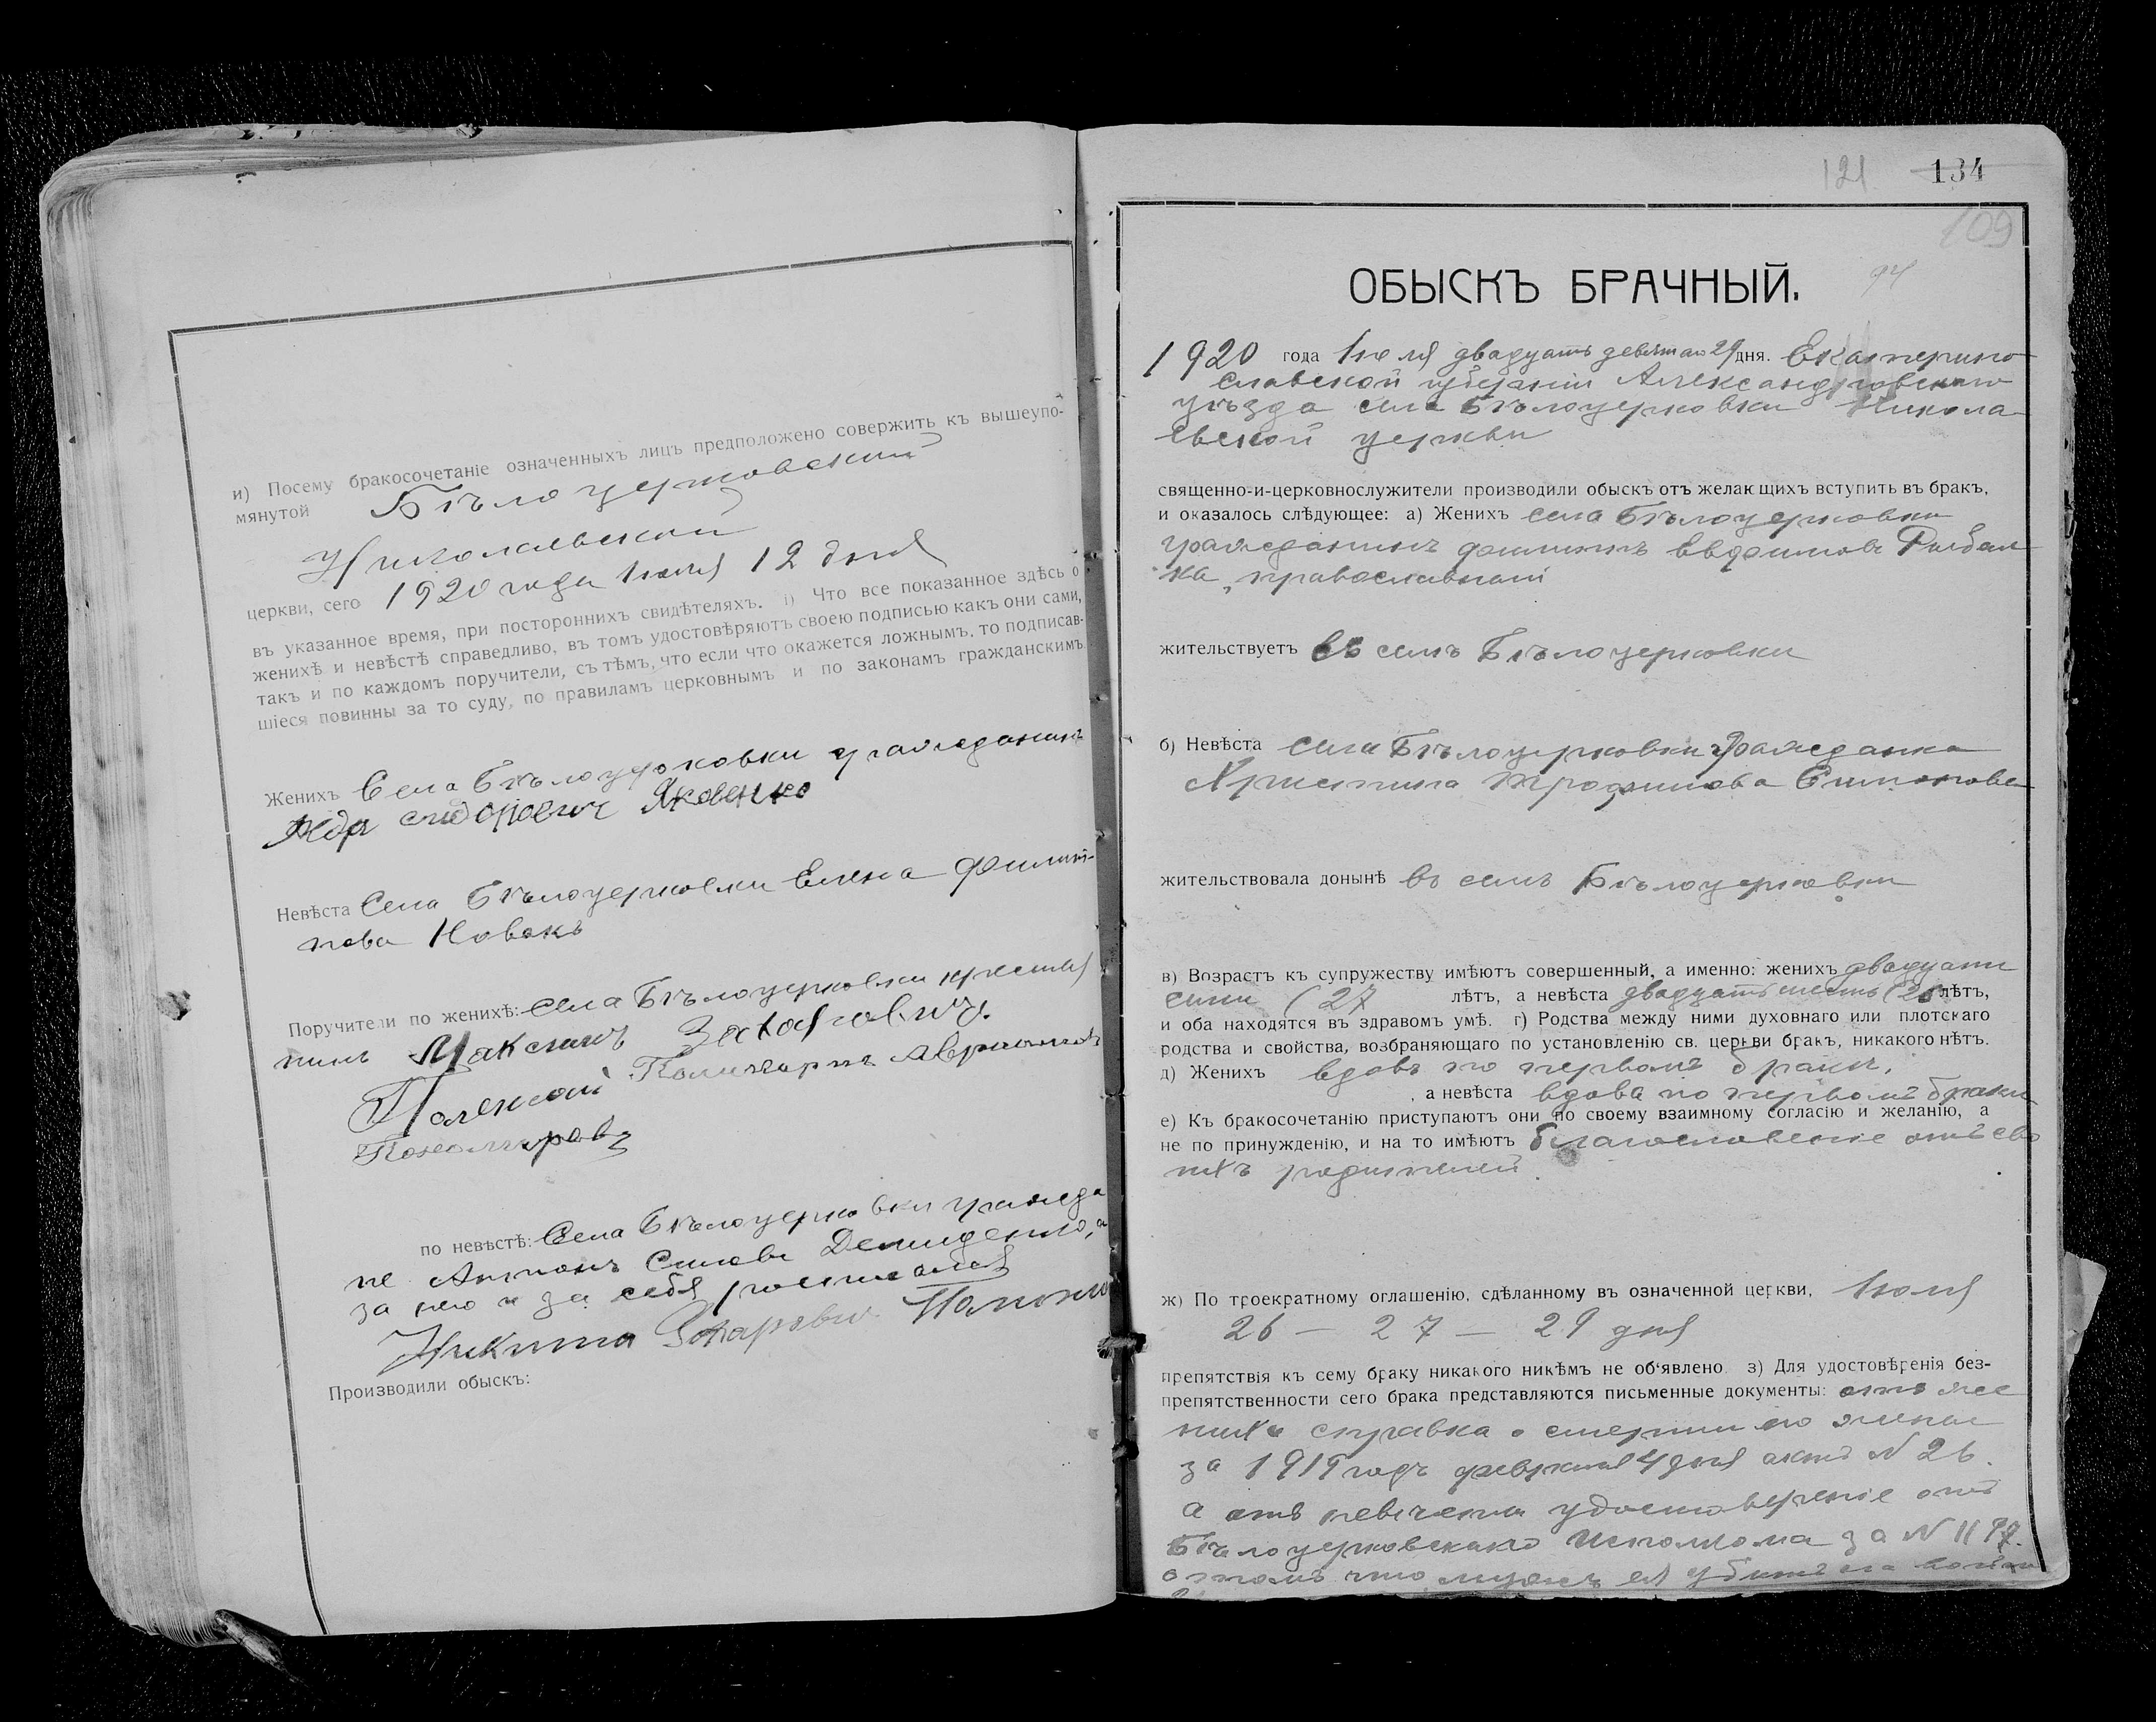 и) Посему бракосочетаніе означенныхъ лицъ предположено совержить къ вышеупо-
мянутой Бѣлоцерковской
Николаевской
церкви, сего 1920 года Іюля 12 дня
въ указанное время, при постороннихъ свидѣтеляхъ. і) Что все показанное здѣсь о
женихѣ и невѣстѣ справедливо, въ томъ удостовѣряютъ своею подписью какъ они сами,
такъ и по каждомъ поручители, съ тѣмъ, что если что окажется ложнымъ, то подписав-
шіеся повинны за то суду, по правиламъ церковнымъ и по законамъ гражданскимъ
Женихъ Села Бѣлоцерковки гражданинъ
Яковенко
Невѣста Села Бѣлоцерковки Елена Филип-
пова Новакъ
Поручители по женихѣ: Села Бѣлоцерковки крестья
нинъ Максимъ Захарович
Поликарпъ
по невѣстѣ: Села Бѣлоцерковки гражда
не Антонъ Демиденко, а
за него и за себя росписался
Никита Захарович
Производили обыскъ:
121 134
109
94
ОБЫСКЪ БРАЧНЫЙ.
1920 года Іюля двадцать девятаго 29 дня. Екатерино
славской губерніи Александровскаго
уѣзда села Бѣлоцерковки Никола
евской церкви
священно-и-церковнослужители производили обыскъ отъ желающихъ вступить въ бракъ,
и оказалось слѣдующее: а) Женихъ села Бѣлоцерковки
гражданинъ Филиппъ Евдокимовъ Рыбал
ка, православный
жительствуетъ въ селѣ Бѣлоцерковки
б) Невѣста села Бѣлоцерковки гражданка
Христина Трофимова Симонова
жительствовала донынѣ въ селѣ Бѣлоцерковки
в) Возрастъ къ супружеству имѣютъ совершенный, а именно: женихъ двадцати
семи (27 лѣтъ, а невѣста двадцать шесть (26 лѣтъ,
и оба находятся въ здравомъ умѣ. г) Родства между ними духовнаго или плотскаго
родства и свойства, возбраняющаго по установленію св. церкви бракъ, никакого нѣтъ.
д) Женихъ вдовъ по первомъ бракѣ,
, а невѣста вдова по первомъ браки
е) Къ бракосочетанію приступаютъ они по своему взаимному согласію и желанію, а
не по принужденію, и на то имѣютъ благословеніе отъ сво
ихъ родителей.
ж) По троекратному оглашенію, сдѣланному въ означенной церкви, Іюля
26 — 27 — 29 дня
препятствія къ сему браку никакого никѣмъ не об‘явлено. з) Для удостовѣренія без-
препятственности сего брака представляются письменные документы: отъ же
ниха справка о смерти его жены
за 1919 годъ февраля 4 дня актъ N 26.
а отъ невѣсты удостоверение отъ
Бѣлоцерковскаго Исполкома за N 1197.
о томъ что мужъ ея убитъ на войнѣ